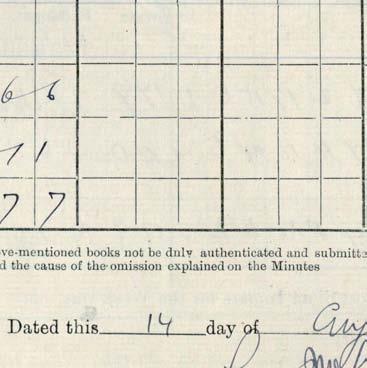 6 6
7 1
7 7
ve-mentioned books not be duly authenticated and submitte
d the cause of the omission explained on the Minutes
Dated this 14 day of Aug